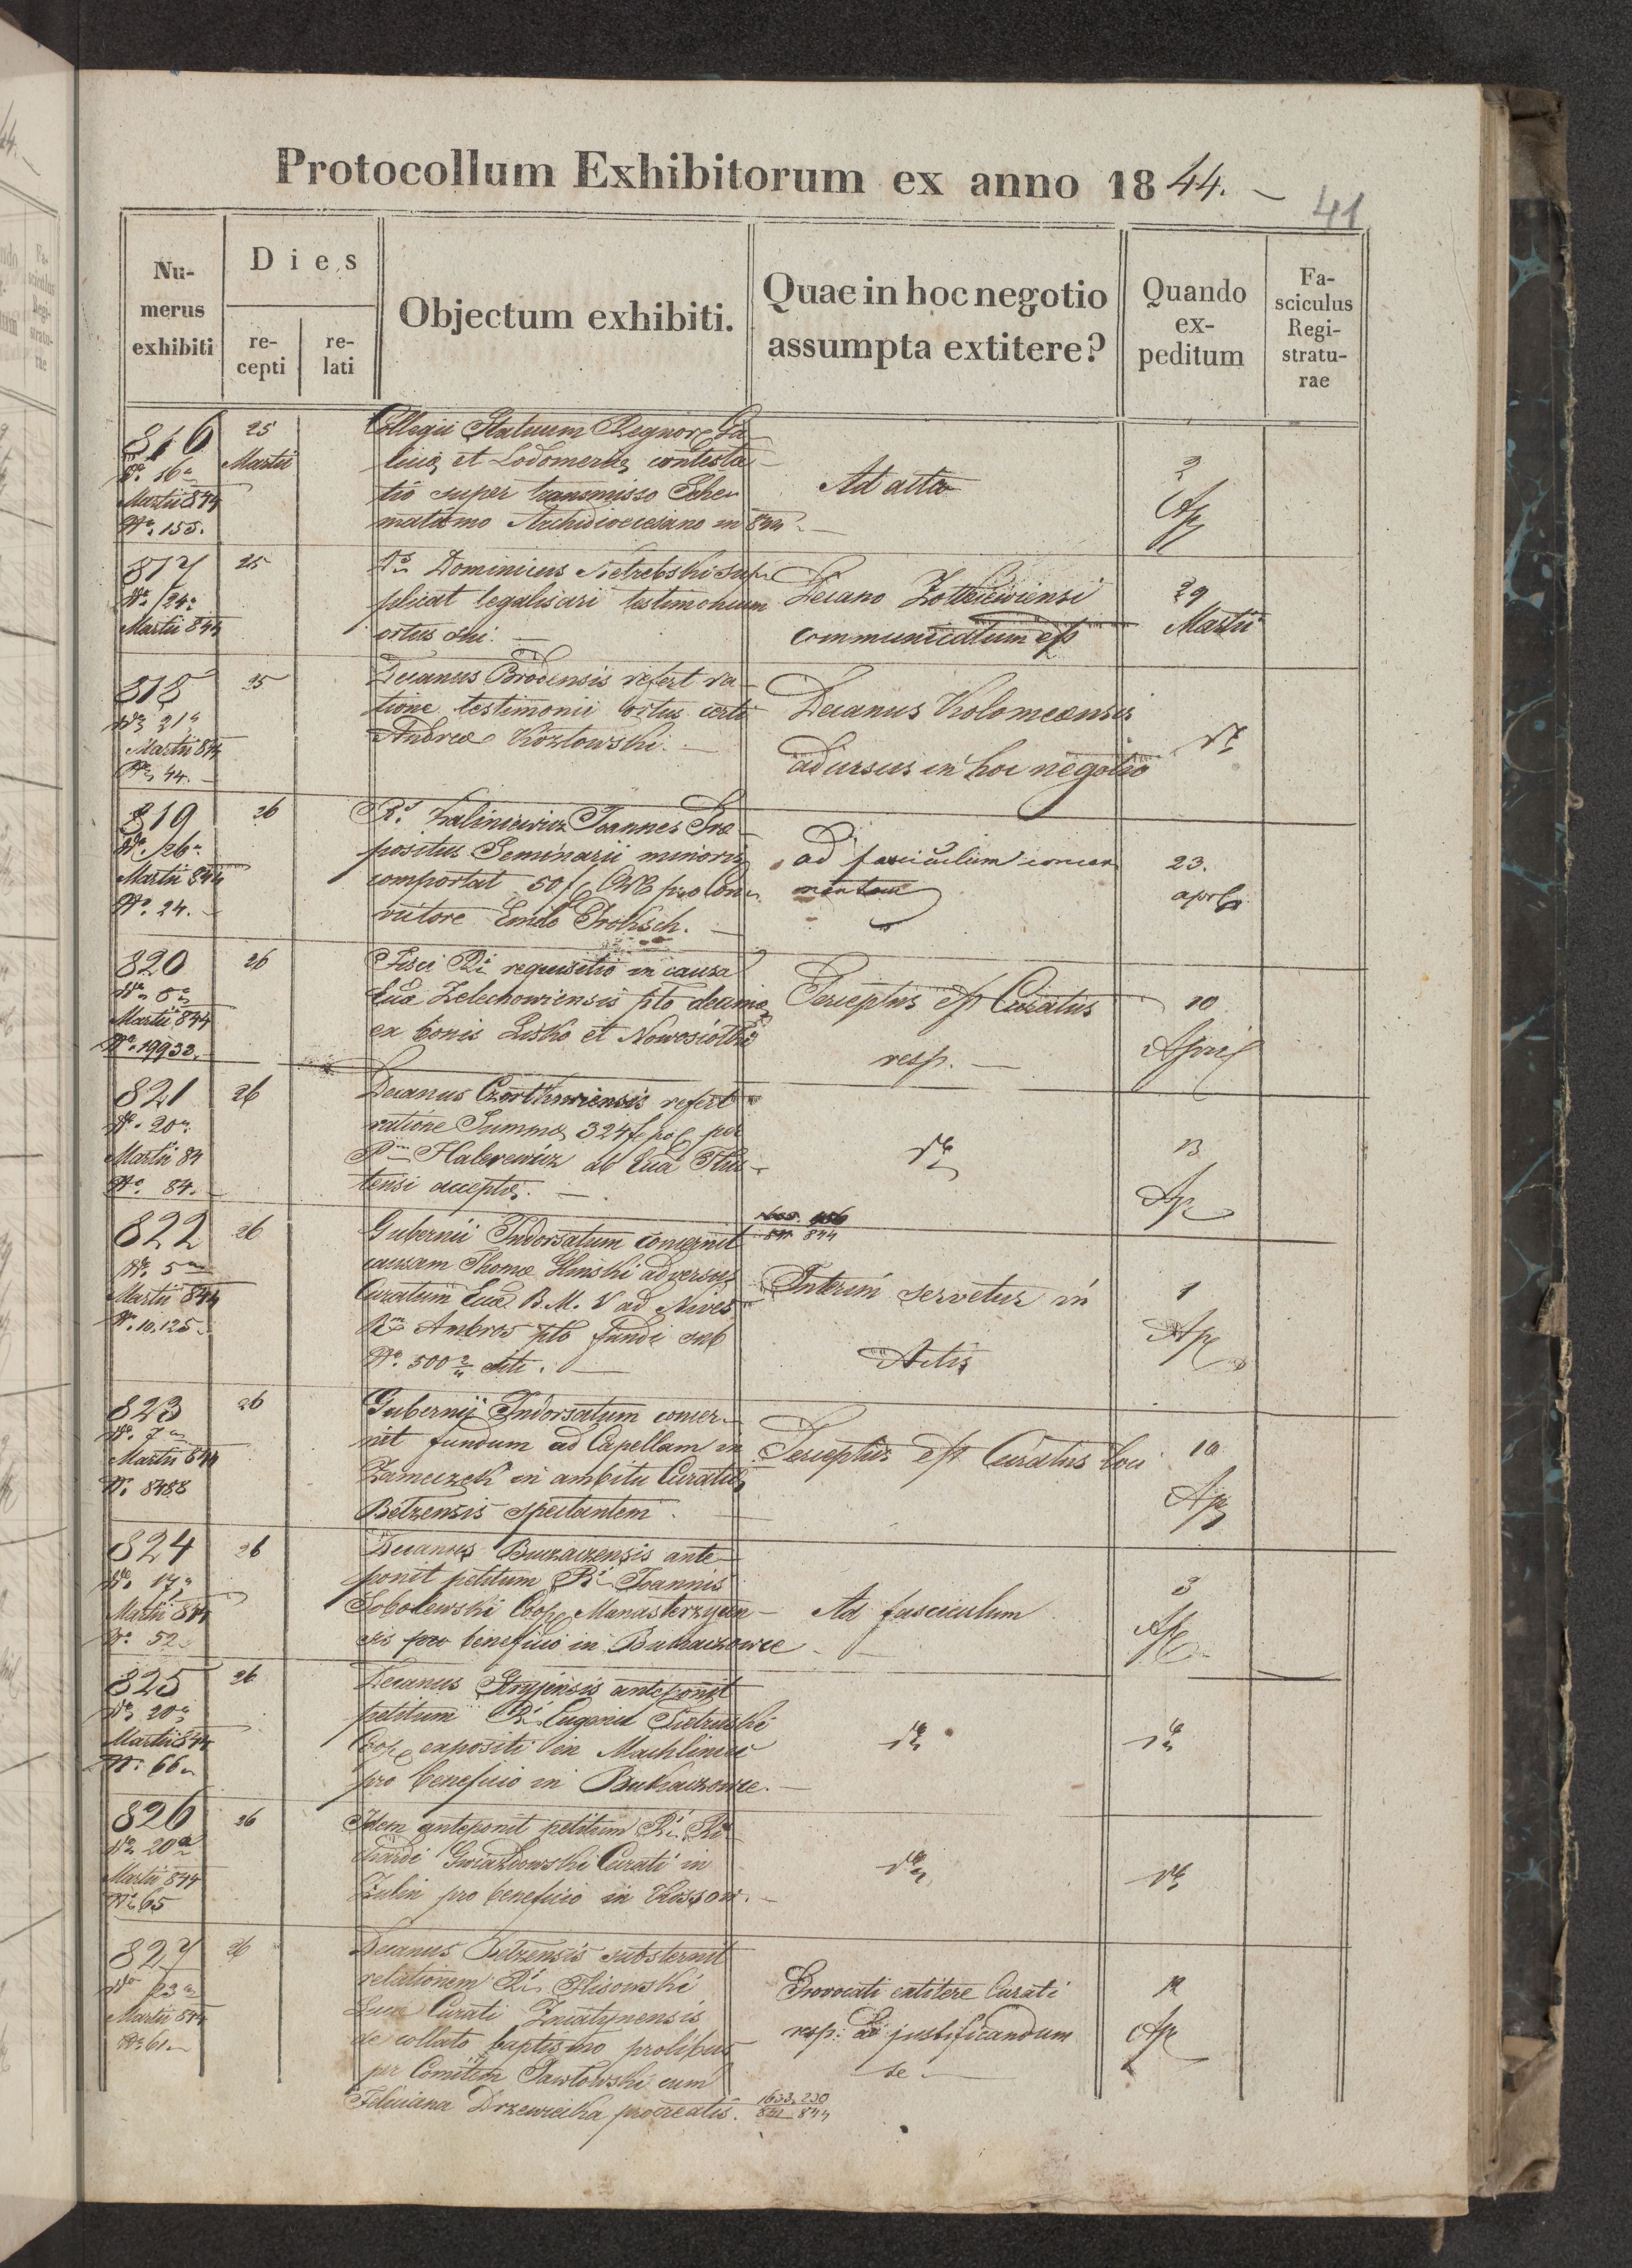 Protocollum Exhibitorum ex anno 1844.
41
Nu-
merus
exhibiti
Dies
re-
cepti
re-
lati
Objectum exhibiti.
Quae in hoc negotio
assumpta extitere?
Quando
ex-
peditum
Fa-
sciculus
Regi-
stratu-
rae
816
16
Martii 844
No. 155.
25
Martii
Collegii Statuum Regnor Ga-
liciae et Lodomeriae contesta-
tio super transmisso Sche-
matismo Archidioecesano in 844
Ad acta
2
Ap
817
24
Martii 844
25
Dominicus Pietrebski sup-
plicat legalisari testimonium
ortus sui.
Decano Zolkiewiensi
communicatum est
29
Martii
818
21
Martii 844
No. 44.
25
Decanus Brodensis refert ra-
tione testimonii ortus certi
Andreae Kozlowski.
Decanus Kolomeansis
aditus in hoc negotio
819
26
Martii 844
No. 24.
26
Kaliniewicz Joannes Prae-
positus Seminarii minoris
comportat 50 f pro Con-
victore Emilo Frohsch.
ad fasciculum concer-
nentem
23.
april
820
Martii 844
No. 19933.
26
Fisci Ri requisitio in causa
Eccla Zelechowiensis pto decimae
ex bonis Lisko et Nowosiolki
Perceptus est Curatus
resp.
10
April
821
20
Martii 84
No. 84.
26
Decanus Czortkowiensis refert
ratione Summae 324 f per
Haberewicz ab Eccla Tlus-
tensi acceptae.
13
Ap
822
5
Martii 844
No. 10.125.
26
Gubernii Indorsatum concernit
causam Thomae Glinski adversus
Curatum Ecclae B.M.V ad Nives
Ambros pto fundi sub
No. 500 siti.
844
Interim servetur in
Actis
1
Ap
823
7
Martii 844
No 8488
26
Gubernii Indorsatum concer-
nit fundum ad Capellam in
Zameczek in ambitu Curatiae
Belzensis spectantem.
Perceptus est Curatus loci
10
Ap
824
17
Martii 844
No. 52
26
Decanus Buczaczensis ante-
ponit petitum Ri Joannis
Sobolewski Coop Manasterzycen-
sis pro beneficio in Bukaczowce
Ad fasciculum
3
Ap
825
20
Martii 844
No. 66
26
Decanus Stryjensis anteponit
petitum Ri Eugenii Pietruski
Coop expositi in Machliniec
pro beneficio in Bukaczowce.
826
20
Martii 844
No 65
26
Idem anteponit petitum Ri Ri-
chardi Gwiazdowski Curati in
Zulin pro beneficio in Kossow.
827
23
Martii 844
No 61
26
Decanus Belzensis substernit
relationem Ri Flisowski
Curati Zwiatynensis
de collato baptismo prolibus
per Comitem Pawlowski cum
Feliciana Drzewiecka procreatis.
1633. 230
841 844
Provocati extitere Curati
resp: ad justificandum
se
Ap